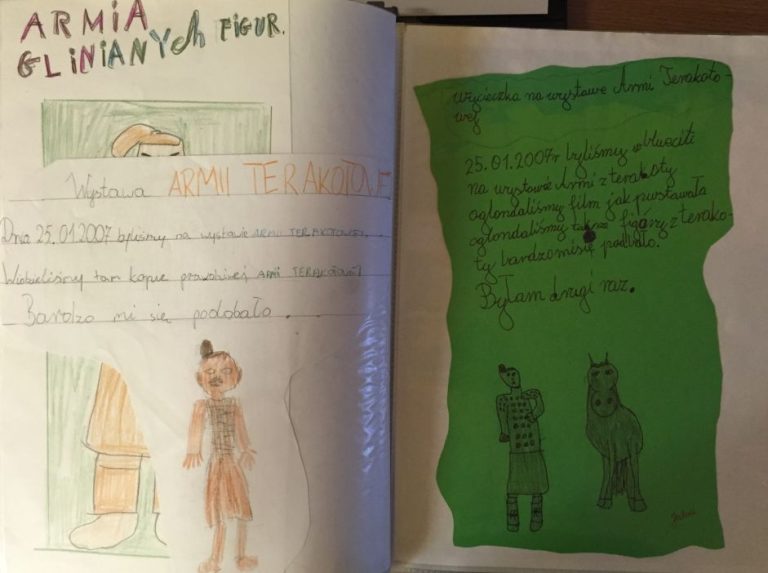 ARMIA
GLINIANYCH FIGUR.
Wystawa ARMII TERAKOTOWE
Dnia 25.01.2007 byliśmy na wystawie ARMII TERAKOTOWEJ.
Widzieliśmy tam kopie prawdziwej ARMI TERAKOTOWEJ
Bardzo mi się podobało.
Wycieczka na wystawe Armi Terakoto-
wej
25.01.2007r byliśmy
na wystawe Armi z terakoty
oglondaliśmy film jak pwstawała
oglondaliśmy figory z terako-
ty bardzomisię podbało.
Byłam drugi raz.